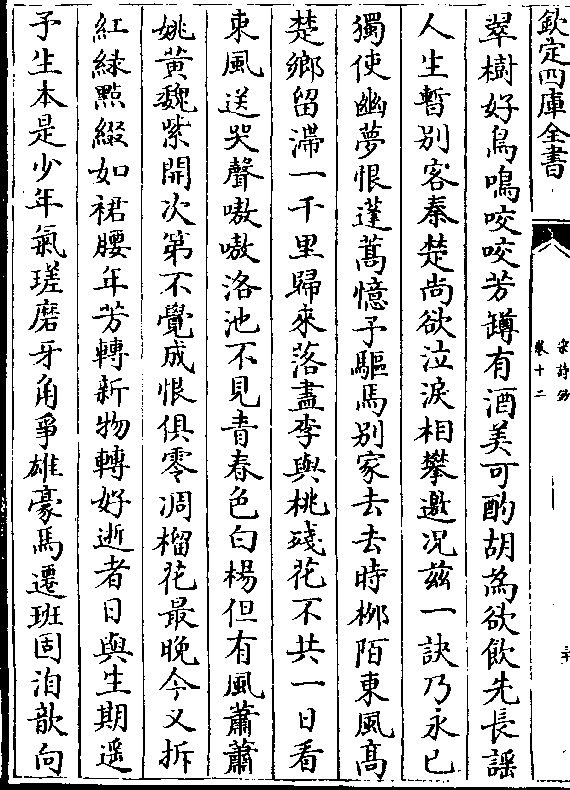 欽定四庫全書
宋詩鈔
卷十二
翠樹好鳥鳴咬咬芳罇有酒美可酌胡為欲飲先長謡
人生暫别客秦楚尚欲泣淚相攀邀况兹一訣乃永已
獨使幽夢恨蓬蒿憶子驅馬别家去去時栁陌東風髙
楚鄉留滯一千里歸來落盡李與桃殘花不共一日看
東風送哭聲嗷嗷洛池不見青春色白楊但有風蕭蕭
姚黄魏紫開次第不覺成恨俱零凋榴花最晚今又拆
紅緑點綴如裙腰年芳轉新物轉好逝者日與生期遥
予生本是少年氣瑳磨牙角爭雄豪馬遷班固洎歆向